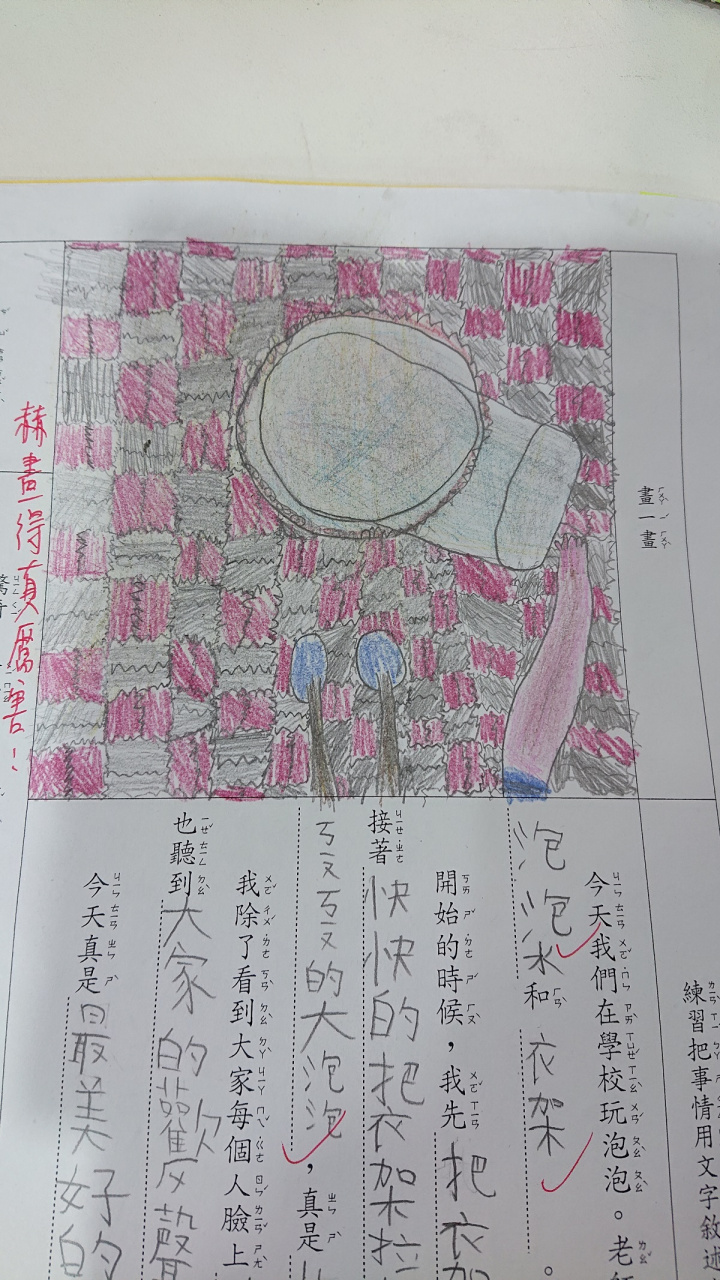 練習把事情用文字敘述
畫一畫
今天我們在學校玩泡泡。老
泡泡水和衣架。
開始的時候，我先把衣加
接著快快的把衣加木拉
ㄎㄡㄎㄡ的大泡泡，真是
我除了看到大家每個人臉上
也聽到大家的歡反聲
今天真是最美好的
赫畫得真厲害！